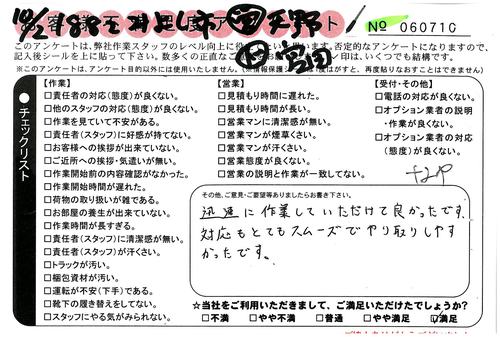 埼玉
足し
市
天野
宮田
No 06071G
このアンケートは、弊社作業スタッフのレベル向上に
否定的なアンケートになりますので、
記入後シールを上に貼って下さい。数多くの正直な
印は、いくつでも結構です。
※このアンケートは、アンケート目的以外には使用いたしません。
はがすと、再度貼りなおすことはできません)
チェックリスト
【作業】
□責任者の対応(態度)が良くない。
□他のスタッフの対応(態度)が良くない。
□作業を見ていて不安がある。
□責任者(スタッフ)に好感が持てない。
□お客様への挨拶が出来ていない。
□ご近所への挨拶・気遣いが無い。
□作業開始前の内容確認がなかった。
□作業開始時間が遅れた。
□荷物の取り扱いが雑である。
□お部屋の養生が出来ていない。
□作業時間が長すぎる。
□責任者(スタッフ)に清潔感が無い。
□責任者(スタッフ)が汗くさい。
□トラックが汚い。
□梱包資材が汚い。
□運転が不安(下手)である。
□靴下の履き替えをしてない。
□スタッフにやる気がみられない。
【営業】
□見積もり時間に遅れた。
□見積もり時間が長い。
□営業マンに清潔感が無い。
□営業マンが煙草くさい。
□営業マンが汗くさい。
□営業態度が良くない。
□営業の説明と作業が一致してない。
【受付・その他】
□電話の対応が良くない。
□オプション業者の説明
・作業が良くない。
□オプション業者の対応
(態度)が良くない。
その他、ご意見・ご要望等ありましたらお書き下さい。
迅速に作業していただけて良かったです。
対応もとてもスムーズでやり取りしやす
かったです。
☆当社をご利用いただきまして、ご満足いただけたでしょうか?
□不満 □やや不満 □普通 □やや満足 ☑満足